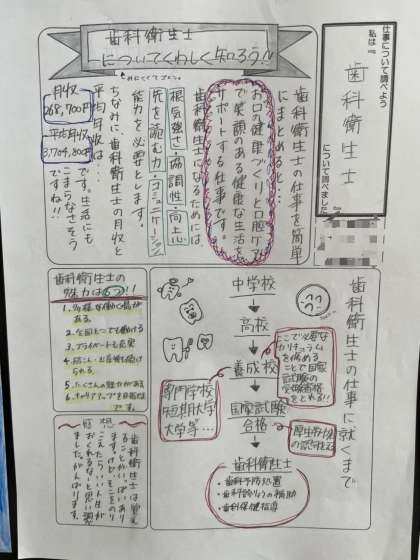 仕事について調べよう
私は『
歯科衛生士
』について調べました
歯科衛生士
についてくわしく知ろう
歯科衛生士の仕事を簡単
にまとめると…
お口の健康づくりと口腔ケア
で笑顔のある健康な生活を
サポートする仕事です。
歯科衛生士になるためには、
根気強さ・協調性・向上心
先を読む力・コミュニケーション
能力を必要とします。
ちなみに、歯科衛生士の月収と
平均年収は…
月収
268,700円
平均年収
3,704,800円
です。生活にも
こまらなさそう
ですね!!
歯科衛生士の仕事に就くまで
中学校
高校
養成校
国家試験
合格
歯科衛生士
・歯科予防処置
・歯科診療の補助
・歯科保健指導
専門学校
短期大学
大学等…
ここで必要な
カリキュラム
を修める
ことで国家
試験の
受験資格
をとれる!!
歯科衛生士の
魅力は6つ!!
ある。
2.全国どこでも働ける
3.プライベートも充実
られる
5.たくさんの
です。
感想
歯科衛生士は覚え
ることがいっぱいあり
ました。がんばります。